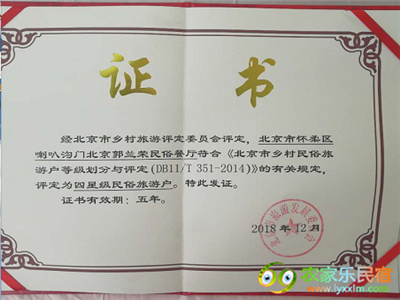 证书
经北京市乡村旅游评定委员会评定，北京市怀柔区
喇叭沟门北京郭兰荣民俗餐厅符合《北京市乡村民俗旅
游户等级划分与评定(DB11/T 351-2014)》的有关规定，
评定为四星级民俗旅游户。特此发证。
证书有效期：五年。
旅游发展委员会
2018年12月
农家乐民宿
www.lyxxlm.com